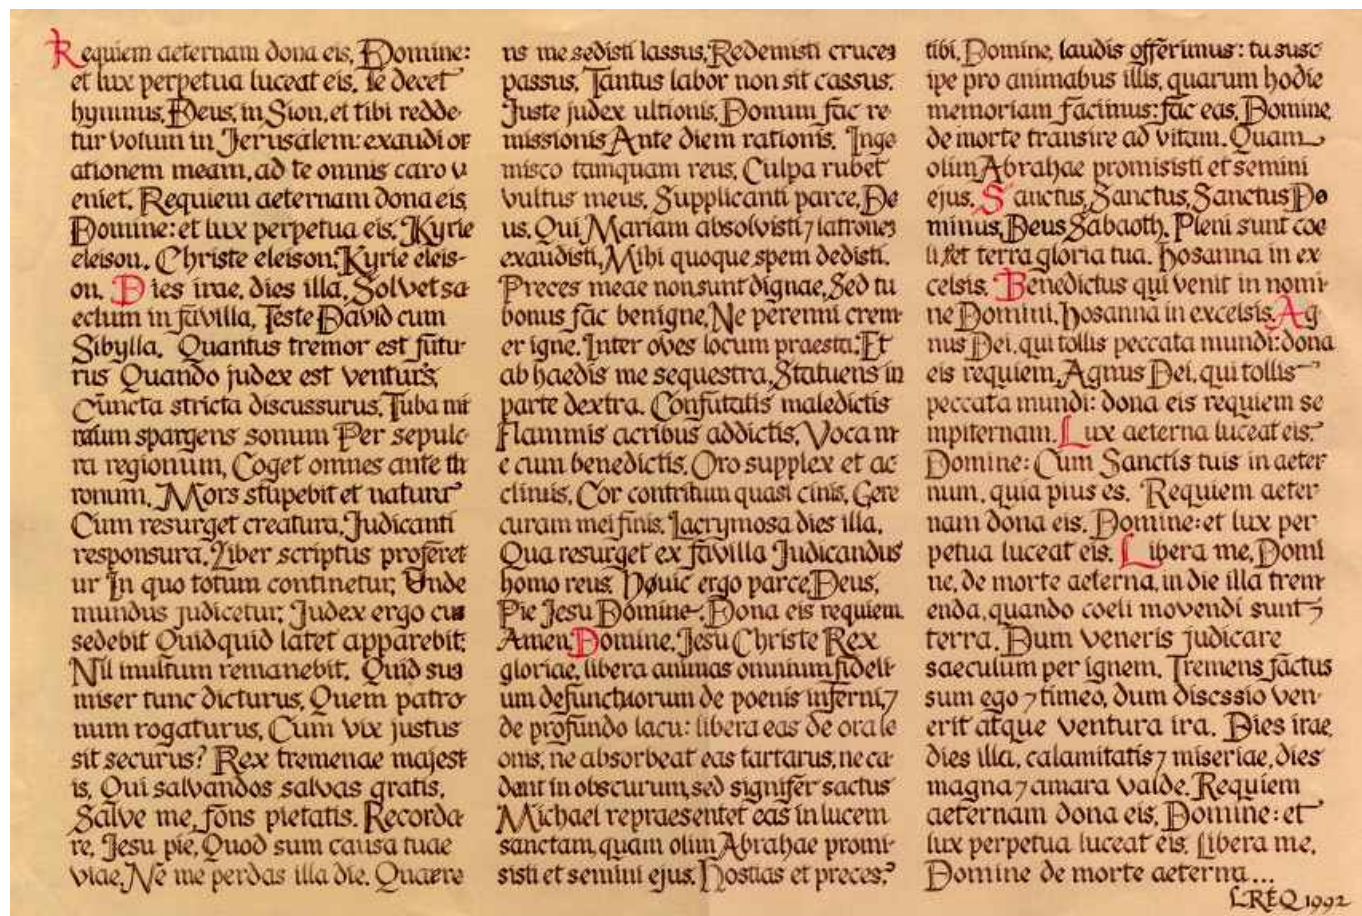 Requiem aeternam dona eis, Domine:
et lux perpetua luceat eis. Te decet
hymnus, Deus, in Sion, et tibi redde-
tur votum in Jerusalem: exaudi or
ationem meam, ad te omnis caro v
eniet. Requiem aeternam dona eis
Domine: et lux perpetua eis. Kyrie
eleison. Christe eleison. Kyrie eleis-
on. Dies irae, dies illa, Solvet sa
eclum in favilla, Teste David cum
Sibylla. Quantus tremor est futu-
rus Quando judex est venturs,
Cuncta stricta discussurus. Tuba mi
rum spargens sonum Per sepulc
ra regionum, Coget omnes ante th
ronum. Mors stupebit et natura
Cum resurget creatura, Judicanti
responsura. Liber scriptus proferet
ur In quo totum continetur, Unde
mundus judicetur. Judex ergo cum
sedebit Quidquid latet apparebit:
Nil inultum remanebit. Quid sum
miser tunc dicturus, Quem patro
num rogaturus, Cum vix justus
sit securus? Rex tremenae majest
is, Qui salvandos salvas gratis,
Salve me, fons pietatis. Recorda
re, Jesu pie, Quod sum causa tuae
viae, Ne me perdas illa die. Quaere
ns me, sedisti lassus, Redemisti cruces
passus, Tantus labor non sit cassus.
Juste judex ultionis, Donum fac re
missionis Ante diem rationis. Inge
misco tamquam reus, Culpa rubet
vultus meus, Supplicanti parce, De
us. Qui Mariam absolvisti, ⁊ latrones
exaudisti, Mihi quoque spem dedisti.
Preces meae non sunt dignae, Sed tu
bonus fac benigne, Ne perenni crem
er igne. Inter oves locum praesta: Et
ab haedis me sequestra, Statuens in
parte dextra. Confutatis maledictis
Flammis acribus addictis, Voca m
e cum benedictis. Oro supplex et ac
clinis, Cor contritum quasi cinis, Gere
curam mei finis. Lacrymosa dies illa,
Qua resurget ex favilla Judicandus
homo reus. Huic ergo parce, Deus,
Pie Jesu Domine, Dona eis requiem.
Amen. Domine, Jesu Christe Rex
gloriae, libera animas omnium fideli-
um defunctuorum de poenis inferni, ⁊
de profundo lacu: libera eas de ora le
onis, ne absorbeat eas tartarus, ne ca-
dant in obscurum, sed signifer sactus
Michael repraesentet eas in lucem
sanctam, quam olim Abrahae promi-
sisti et semini ejus. Hostias et preces,
tibi, Domine, laudis offerimus: tu susc
ipe pro animabus illis, quarum hodie
memoriam facimus: fac eas, Domine,
de morte transire ad vitam. Quam
olim Abrahae promisisti et semini
ejus. Sanctus, Sanctus, Sanctus Do
minus, Deus Sabaoth. Pleni sunt coe
li et terra gloria tua. Hosanna in ex
celsis. Benedictus qui venit in nomi-
ne Domini, hosanna in excelsis. Ag
nus Dei, qui tollis peccata mundi: dona
eis requiem, Agnus Dei, qui tollis
peccata mundi: dona eis requiem se
mpiternam. Lux aeterna luceat eis,
Domine: Cum Sanctis tuis in aeter
num, quia pius es. Requiem aeter-
nam dona eis, Domine: et lux per
petua luceat eis. Libera me, Domi
ne, de morte aeterna, in die illa trem
enda, quando coeli movendi sunt ⁊
terra. Dum veneris judicare
saeculum per ignem. Tremens factus
sum ego ⁊ timeo, dum discssio ven-
erit atque ventura ira. Dies irae,
dies illa, calamitatis ⁊ miseriae, dies
magna ⁊ amara valde. Requiem
aeternam dona eis, Domine: et
lux perpetua luceat eis. Libera me,
Domine de morte aeterna...
LREQ 1992